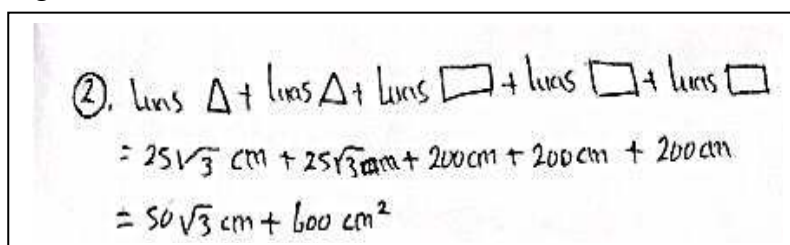 ②. luas △ + luas △ + luas ▭ + luas ▭ + luas ▭
= 25√3 cm + 25√3 cm + 200 cm + 200 cm + 200 cm
= 50√3 cm + 600 cm²